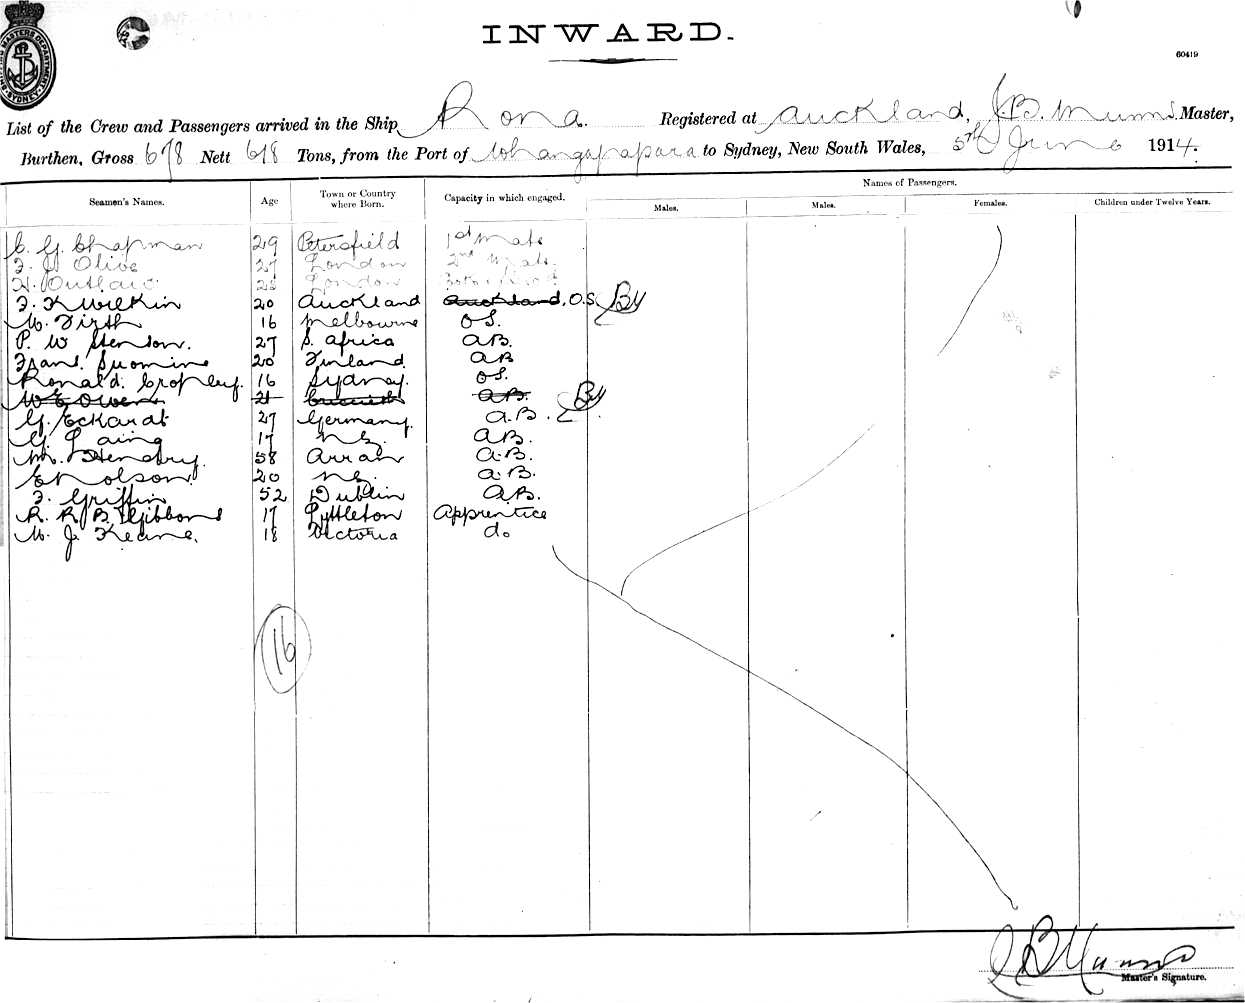 INWARD.
60419
SHIPPING MASTERS DEPARTMENT SYDNEY
List of the Crew and Passengers arrived in the Ship Rona. Registered at Auckland, J B. Munro Master,
Burthen, Gross 678 Nett 618 Tons, from the Port of Whangapapara to Sydney, New South Wales, 5th June 1914.
Seamen's Names. Age Town or Country where Born. Capacity in which engaged. Names of Passengers.
Males. Males. Females. Children under Twelve Years.
C. G. Chapman 29 Petersfield 1st Mate
F. H Olive 27 London 2nd Mate
H. Outlaw London
F. K Wilkin 20 Auckland Auckland, O.S. By
W. Firth 16 Melbourne OS.
P. W Henson. 27 S. Africa A.B.
Frans. Suomine 20 Finland AB
Ronald. Cropley. 16 Sydney. OS.
W E Owens 21 A.B. By
G. Eckardt 27 Germany. A.B.
G Laing 17 N Z. A.B.
M. Hendry. 58 Arran A.B.
E Nolson 20 N Z. A.B.
F. Griffin 52 Dublin A.B.
R. R. B. Gibbons 17 Lyttleton Apprentice
W. J. Keane. 18 Victoria do
16
J B Munro
Master's Signature.